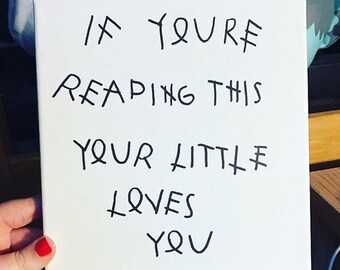 IF YOURE
READING THIS
YOUR LITTLE
LOVES
YOU